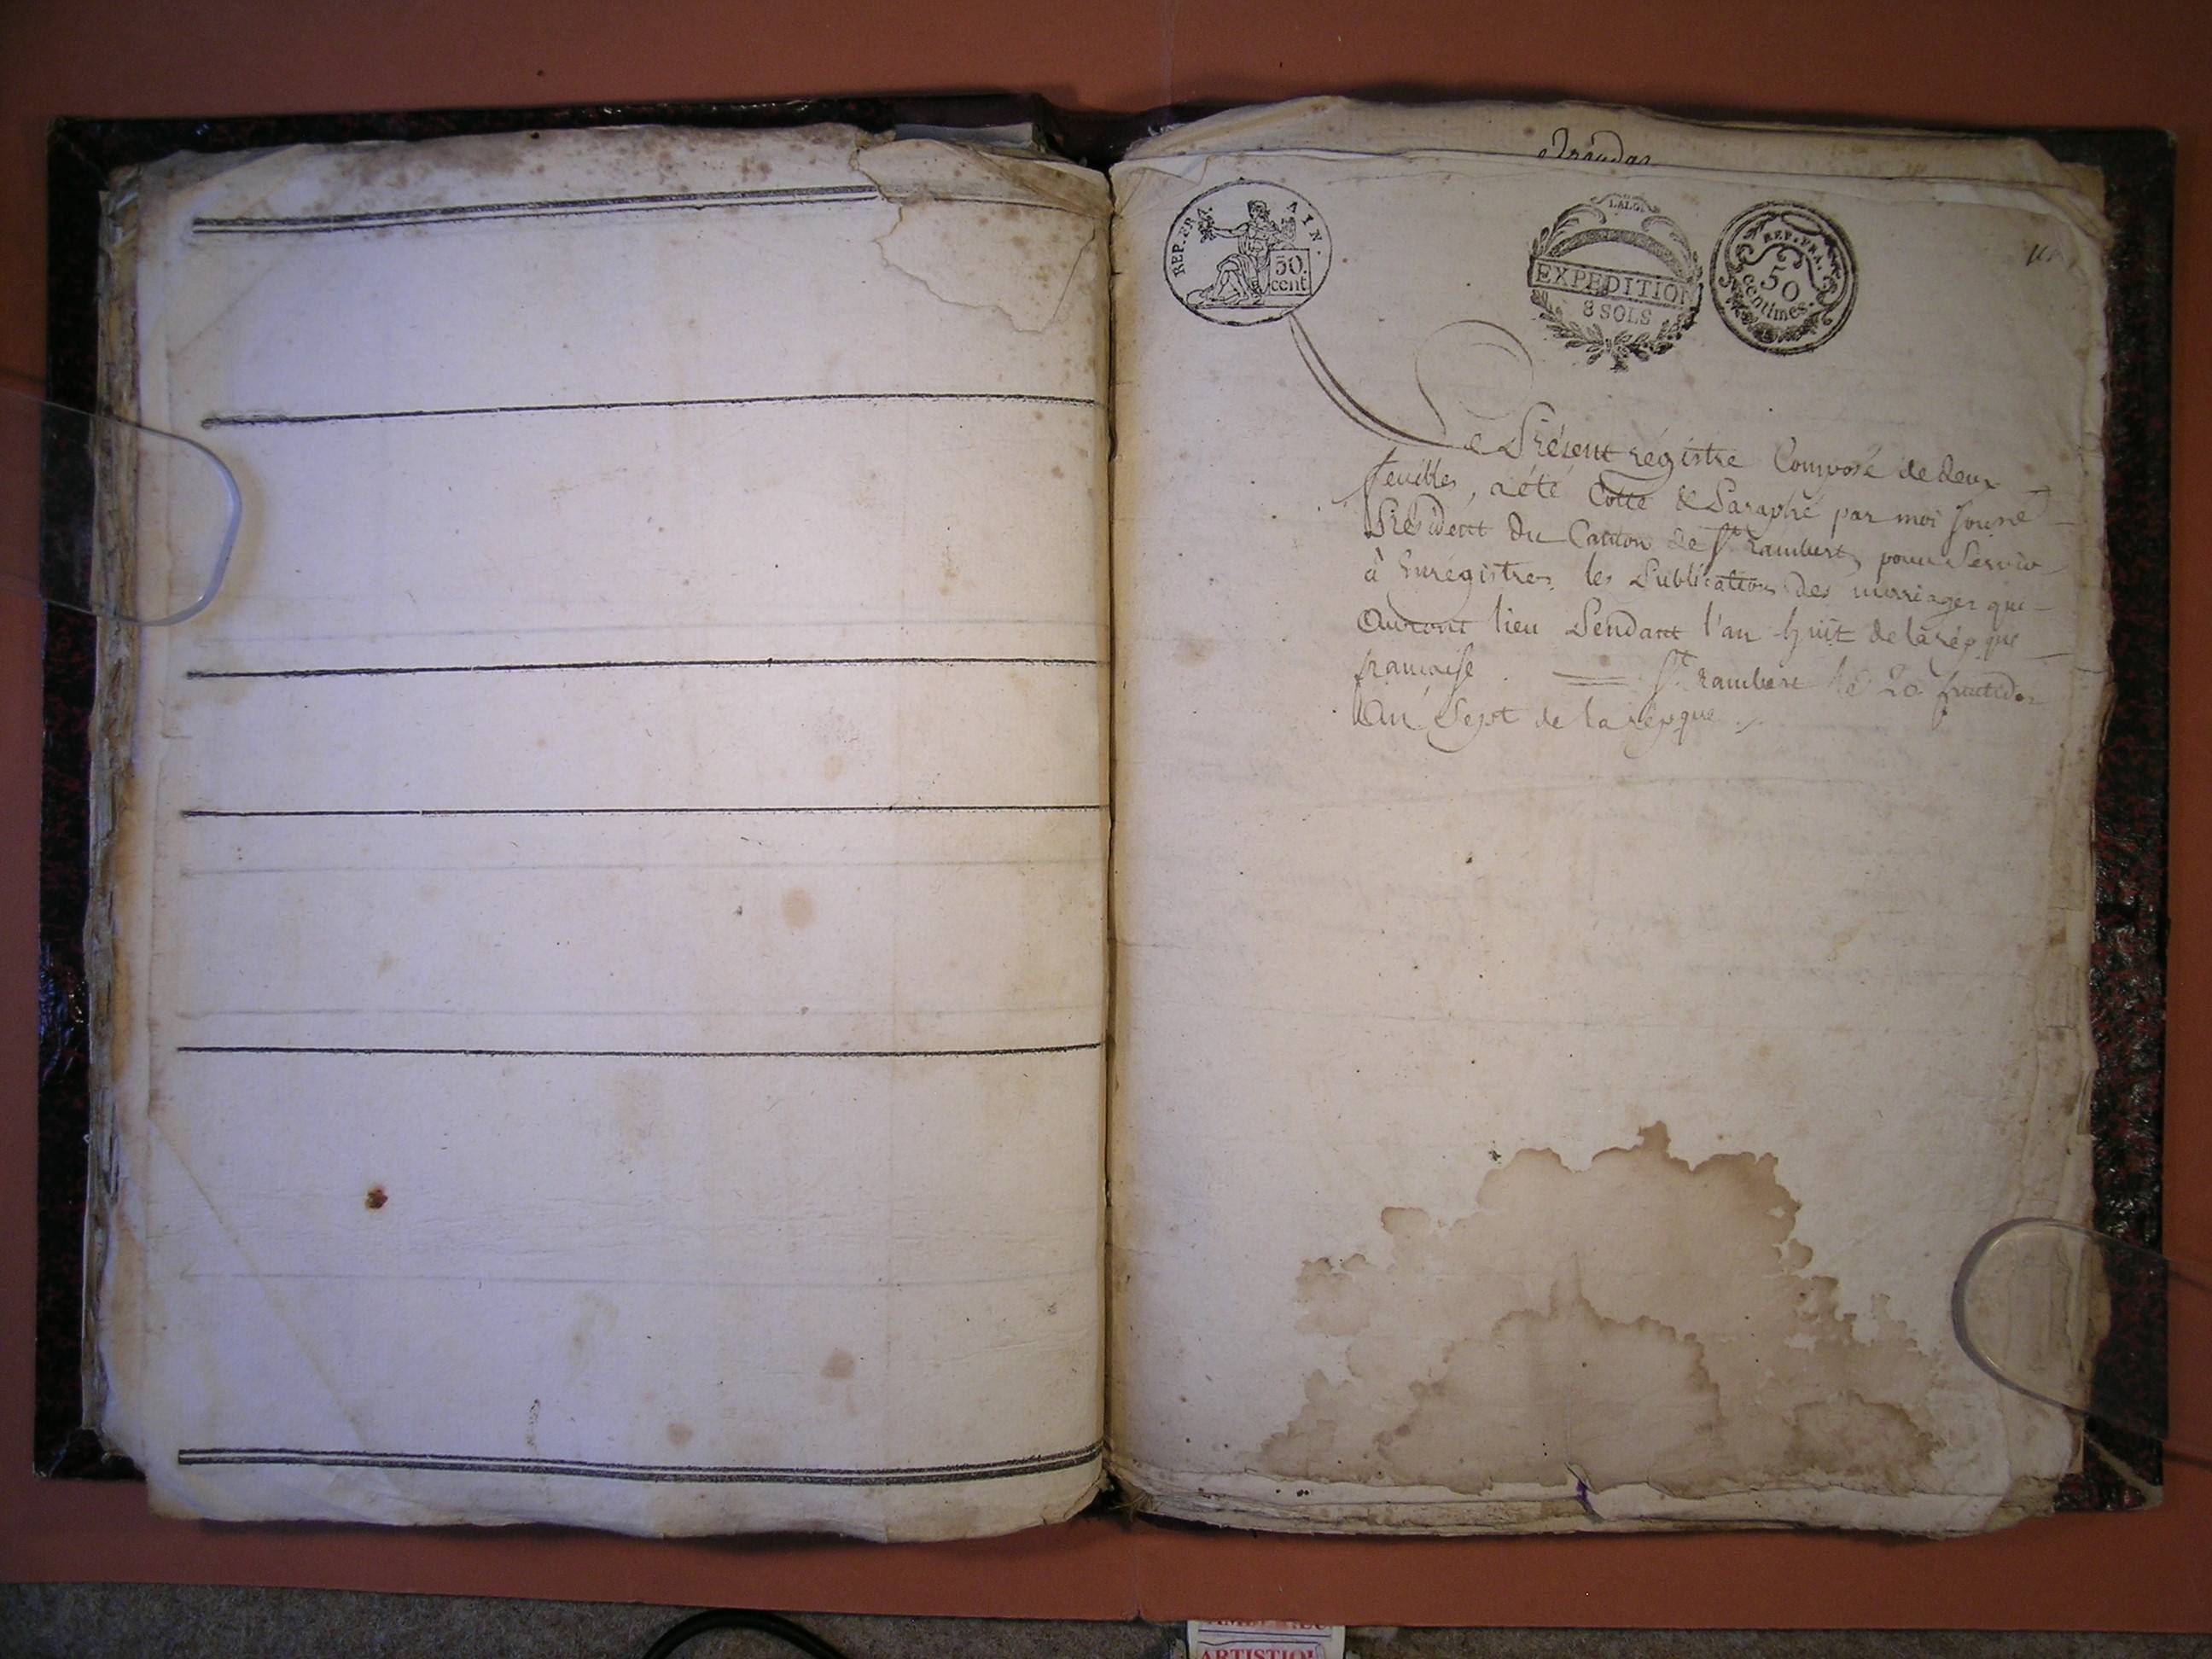 Arandas
REP. FRA. AIN.
50. cent.
LALOI
EXPEDITION
8 SOLS
REP. FRA.
50
centimes.
Le Présent régistre Composé de deux
feuilles, a été Cotté & Paraphé par moi sousné
Président Du Canton de St. rambert, pour Servir
à Enrégistrer les Publications des marriages qui
Auront lieu Pendant l'an huit de la répque
francaise. St. rambert le 20 fructidor
An Sept de la répque.
ARTISTIQU